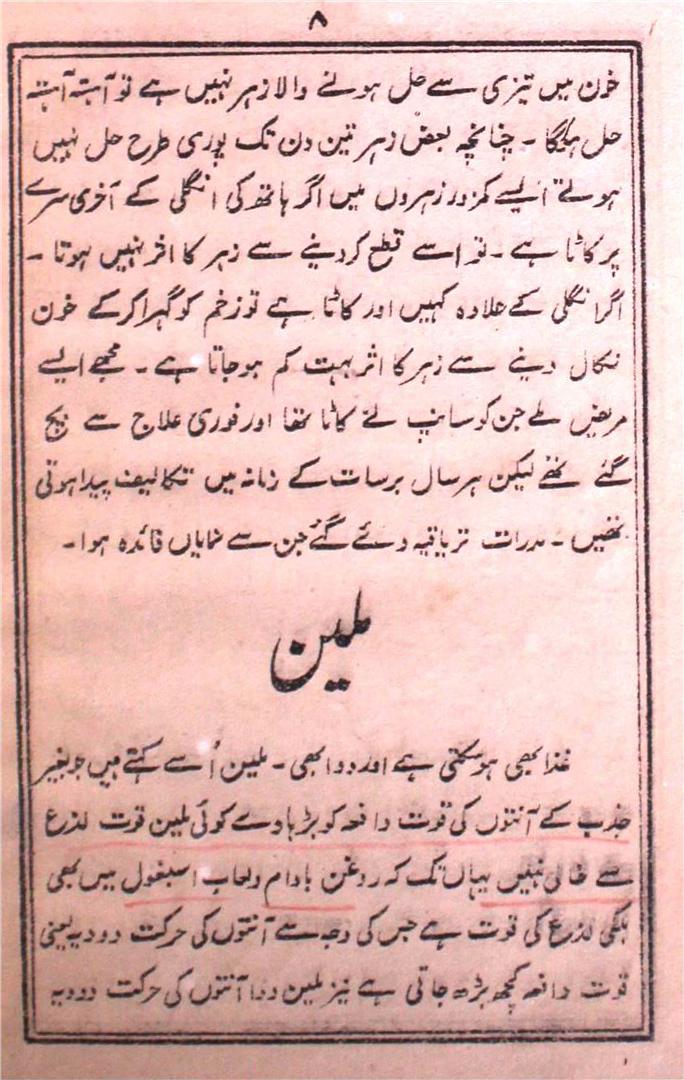 ۸
خون میں تیزی سے حل ہونے والا زہر نہیں ہے تو آہستہ آہستہ
حل ہوگا ۔ چنانچہ بعض زہر تین دن تک پوری طرح حل نہیں
ہوتے ایسے کمزور زہروں میں اگر ہاتھ کی انگلی کے آخری سرے
پر کاٹا ہے ۔ تو اسے قطع کر دینے سے زہر کا اثر نہیں ہوتا ۔
اگر انگلی کے علاوہ کہیں اور کاٹا ہے تو زخم کو گہرا کر کے خون
نکال دینے سے زہر کا اثر بہت کم ہوجاتا ہے ۔ مجھے ایسے
مریض ملے جن کو سانپ نے کاٹا تھا اور فوری علاج سے بچ
گئے تھے لیکن ہر سال برسات کے زمانہ میں تکالیف پیدا ہوتی
تھیں ۔ مدرات تریاقیہ دئے گئے جن سے نمایاں فائدہ ہوا ۔
ملین
غذا بھی ہوسکتی ہے اور دوا بھی ۔ ملین اُسے کہتے ہیں جو بغیر
جذب کے آنتوں کی قوت دافعہ کو بڑہاوے کوئی ملین قوت لذع
سے خالی نہیں یہاں تک کہ روغن بادام ولعاب اسبغول میں بھی
ہلکی لذع کی قوت ہے جس کی وجہ سے آنتوں کی حرکت دودیہ یعنی
قوت دافعہ کچھ بڑھ جاتی ہے نیز ملین دوا آنتوں کی حرکت دودیہ